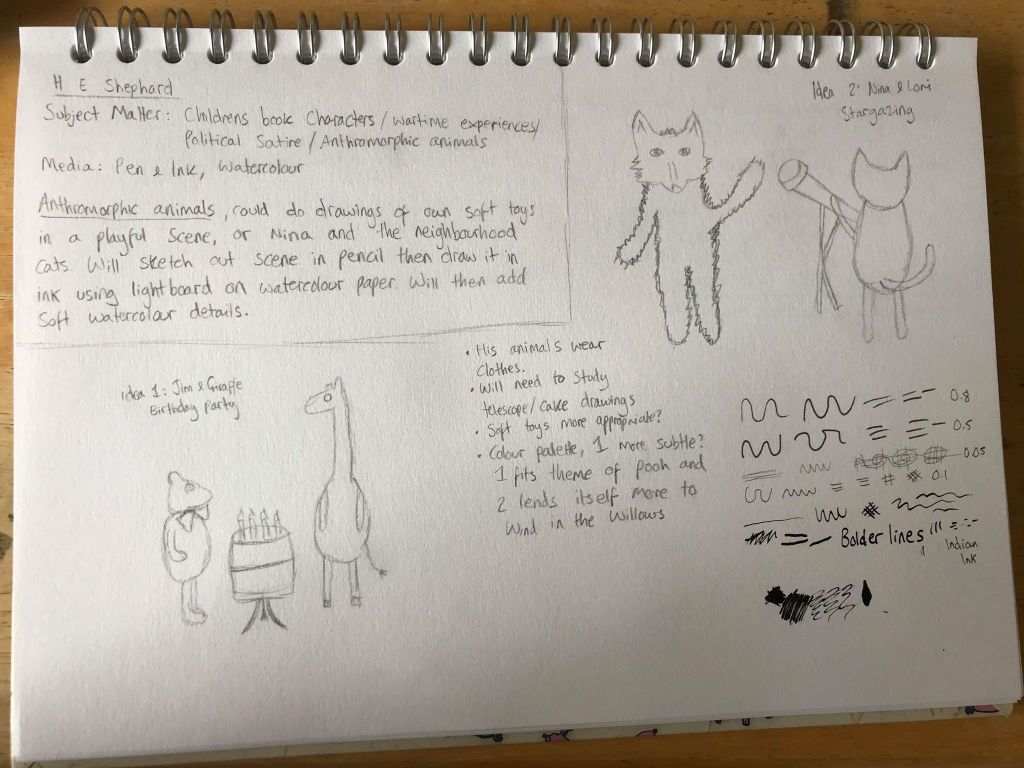 H E Shephard
Subject Matter: Childrens book Characters / wartime experiences/
Political Satire / Anthromorphic animals
Media: Pen & Ink, Watercolour
Anthromorphic animals, could do drawings of own soft toys
in a playful scene, or Nina and the neighbourhood
cats. Will sketch out scene in pencil then draw it in
ink using lightboard on watercolour paper. Will then add
soft watercolour details.
Idea 2: Nina & Lomi
Stargazing
idea 1: Jim & Giraffe
Birthday party
• His animals wear
Clothes.
• Will need to Study
telescope/cake drawings
• Soft toys more appropriate?
• Colour palette, 1 more subtle?
1 fits theme of pooh and
2 lends itself more to
Wind in the Willows
0.8
0.5
0.05
0.1
Bolder lines
Indian
Ink